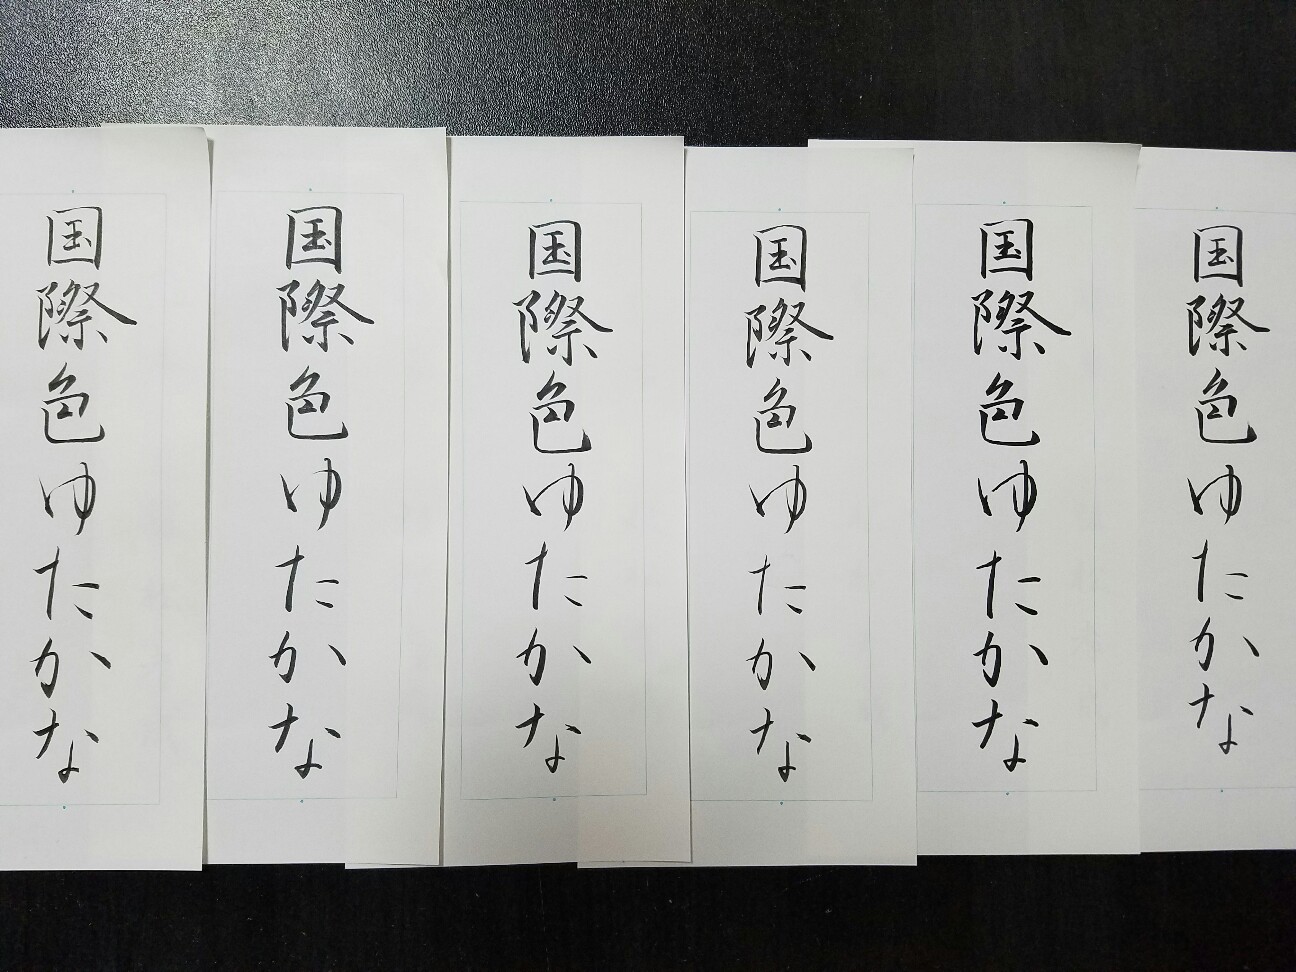 国際色ゆたかな
国際色ゆたかな
国際色ゆたかな
国際色ゆたかな
国際色ゆたかな
国際色ゆたかな